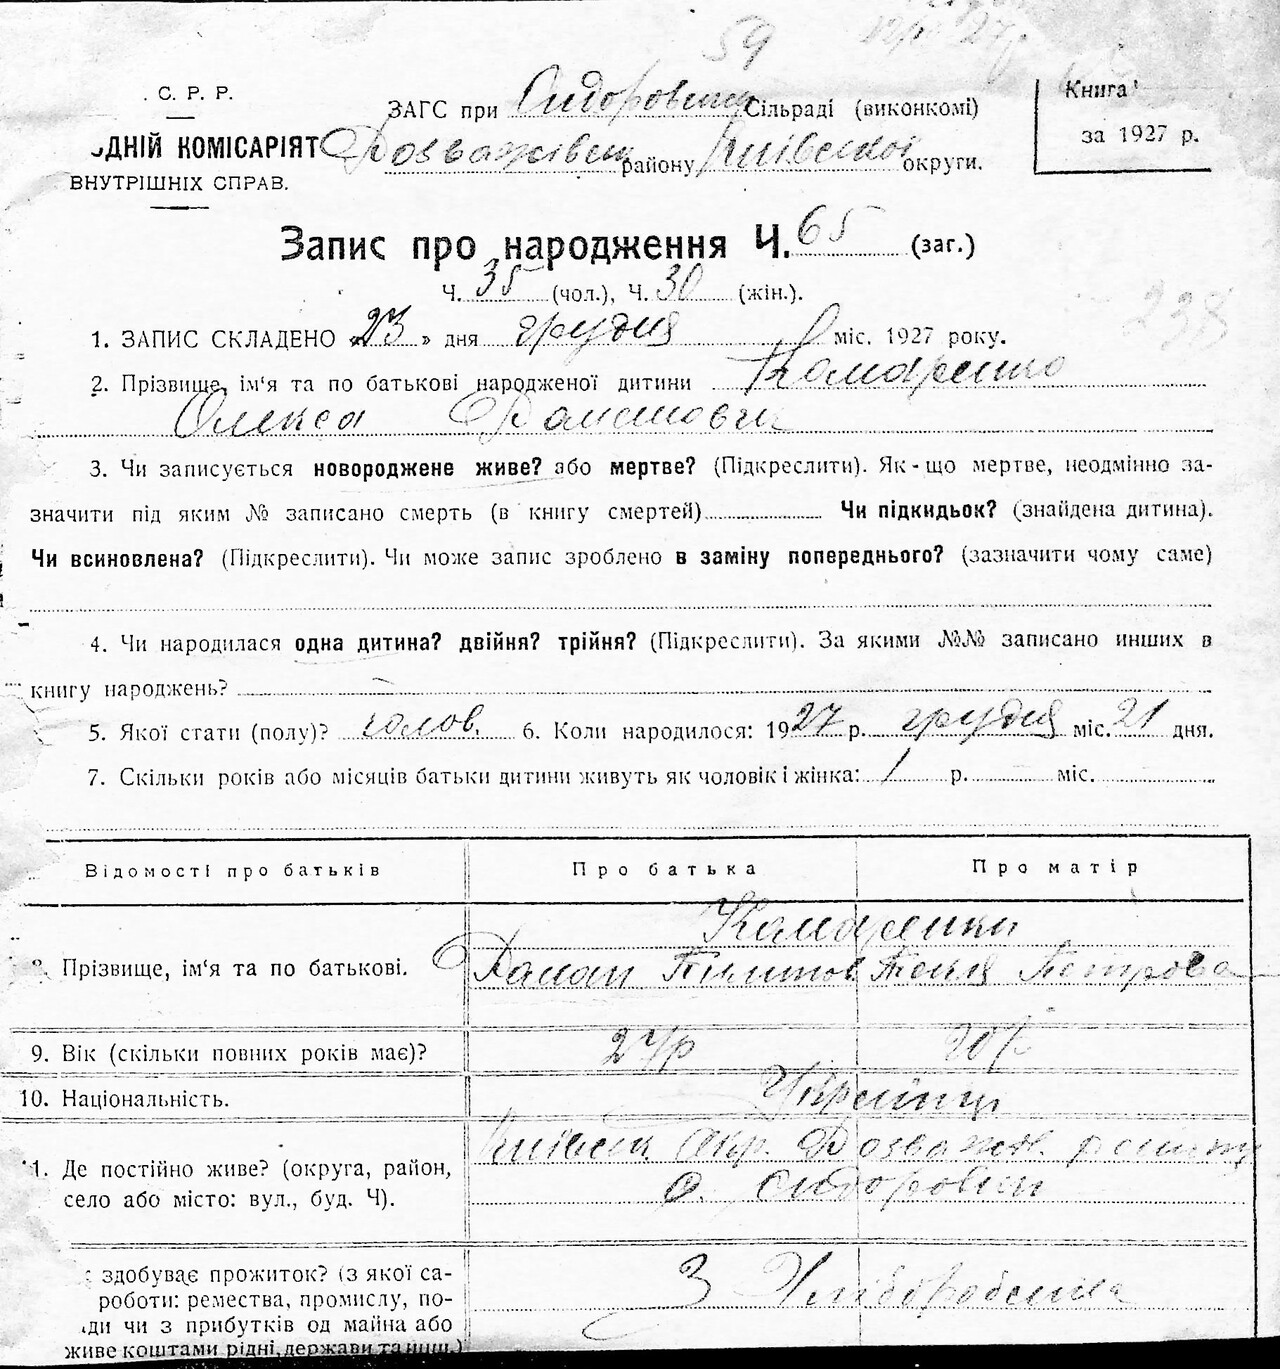 59
. С. Р. Р.
ЗАГС при Сидоровськ Сільраді (виконкомі)
Книга
за 1927 р.
ДНІЙ КОМІСАРІЯТ
Розважівськ району Київської округи.
ВНУТРІШНІХ СПРАВ.
Запис про народження Ч. 65 (заг.)
Ч. 35 (чол.), Ч. 30 (жін.).
238
1. ЗАПИС СКЛАДЕНО «23» дня грудня міс. 1927 року.
2. Прізвище, ім'я та по батькові народженої дитини Комаренко
Олекса Романович
3. Чи записується новороджене живе? або мертве? (Підкреслити). Як-що мертве, неодмінно за-
значити під яким № записано смерть (в книгу смертей) Чи підкидьок? (знайдена дитина).
Чи всиновлена? (Підкреслити). Чи може запис зроблено в заміну попереднього? (зазначити чому саме)
4. Чи народилася одна дитина? двійня? трійня? (Підкреслити). За якими №№ записано инших в
книгу народжень? —
5. Якої стати (полу)? чолов. 6. Коли народилося: 1927 р. грудня міс. 21 дня.
7. Скільки років або місяців батьки дитини живуть як чоловік і жінка: 1 р. міс.
Відомості про батьків Про батька Про матір
Комаренки
Прізвище, ім'я та по батькові. Роман Пилипов Текля Петрова
9. Вік (скільки повних років має)? 27р 20р
10. Національність. Українці
Київськ. Окр. Розважів. району
1. Де постійно живе? (округа, район,
село або місто: вул., буд. Ч). с. Сидоровичі
здобуває прожиток? (з якої са- З Хліборобства
роботи: ремества, промислу, по-
ди чи з прибутків од майна або
живе коштами рідні, держави та инш.)